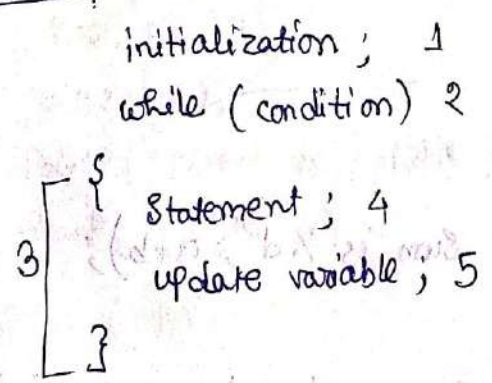 initialization ; 1
while (condition) 2
{
3
Statement ; 4
update variable ; 5
}